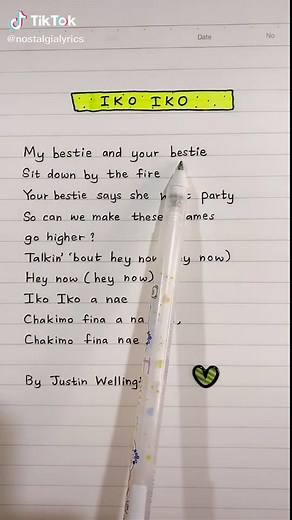 TikTok
@nostalgialyrics
Date
No
IKO IKO
My bestie and your bestie
Sit down by the fire
Your bestie says she party
So can we make these
go higher?
Talkin' 'bout hey now now)
Hey now (hey now)
Iko Iko a nae
Chakimo fina a
Chakimo fina nae
By Justin